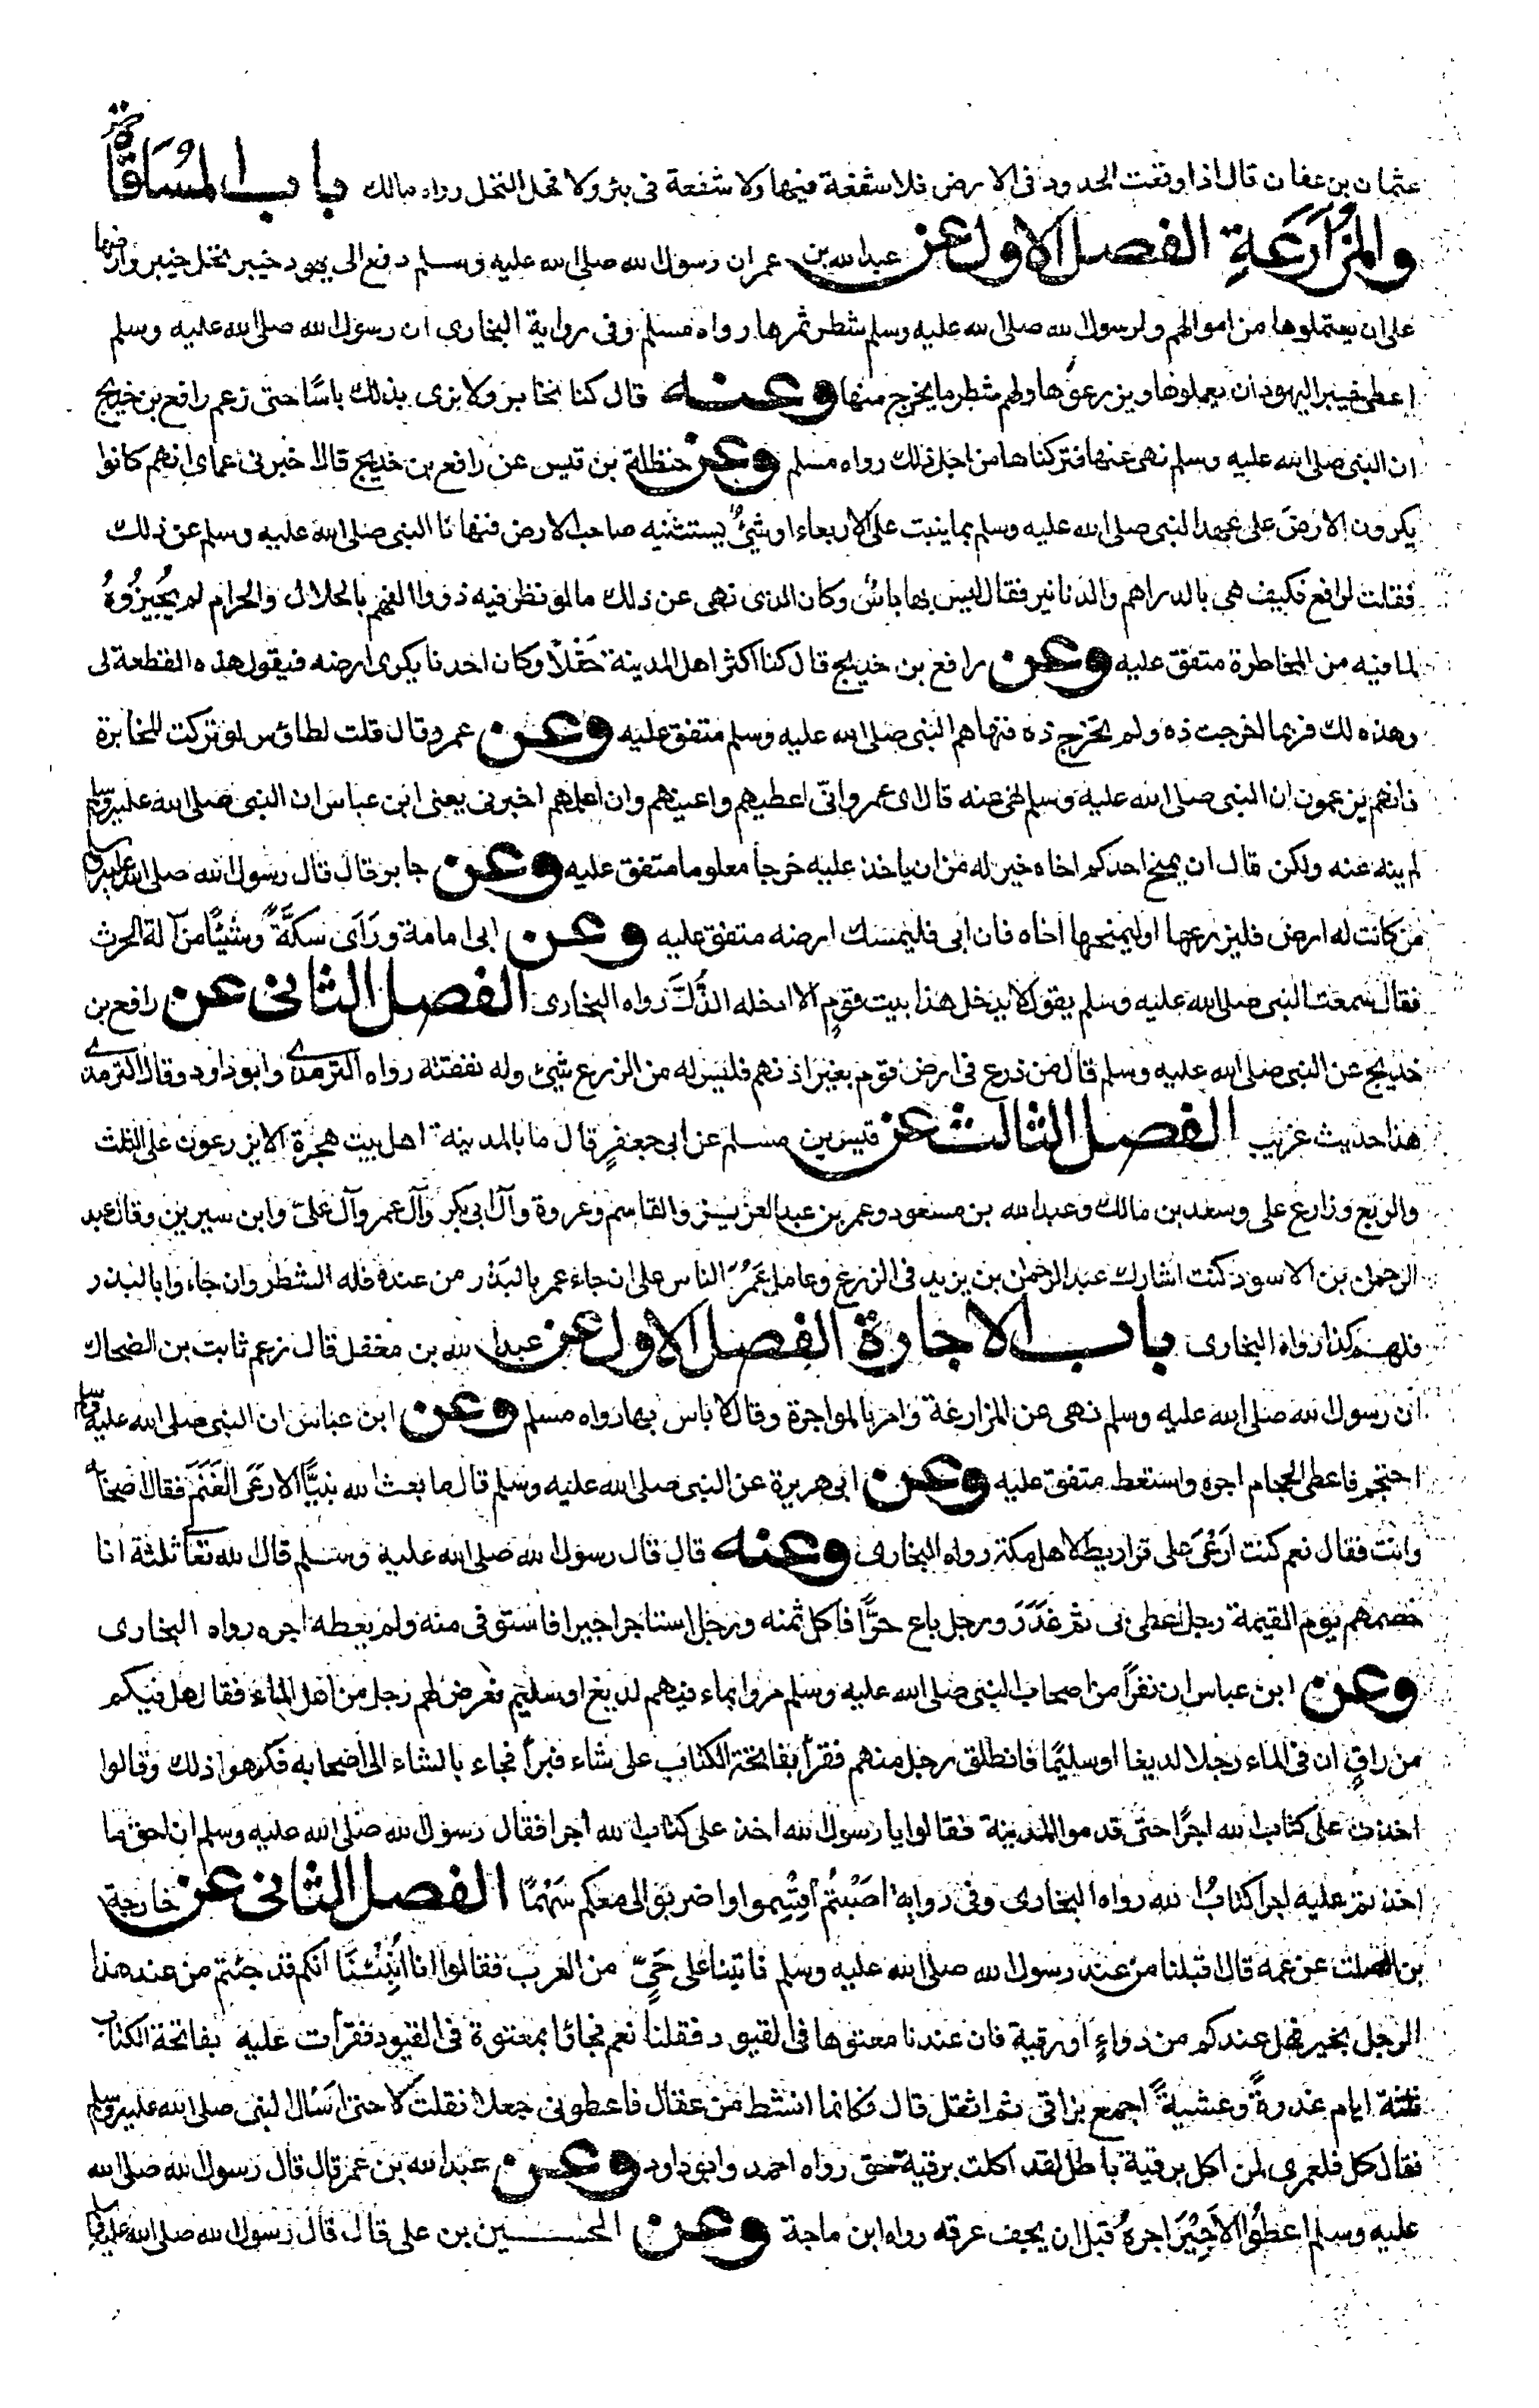 عثمان بن عفان قال اذا وقعت الحدود فى الارض فلا شفعة فيها ولا شفعة فى بئر ولا فحل النخل رواه مالك باب المساقاة
والمُزَارَعَةِ الفصل الاول عن عبد الله بن عمر ان رسول الله صلى الله عليه وسلم دفع الى يهود خيبر نخل خيبر وارضها
على ان يعتملوها من اموالهم ولرسول الله صلى الله عليه وسلم شطر ثمرها رواه مسلم وفى رواية البخارى ان رسول الله صلى الله عليه وسلم
اعطى خيبر اليهود ان يعملوها ويزرعوها ولهم شطر ما يخرج منها وعنه قال كنا نخابر ولا نرى بذلك باسًا حتى زعم رافع بن خديج
ان النبى صلى الله عليه وسلم نهى عنها فتركناها من اجل ذلك رواه مسلم وعن حنظلة بن قيس عن رافع بن خديج قال اخبرنى عماى انهم كانوا
يكرون الارضَ على عهد النبى صلى الله عليه وسلم بما ينبت على الاربعاء او شئٌ يستثنيه صاحب الارض فنهانا النبى صلى الله عليه وسلم عن ذلك
فقلت لرافع فكيف هى بالدراهم والدنانير فقال ليس بها باسٌ وكان الذى نهى عن ذلك ما لو نظر فيه ذووا الفهم بالحلال والحرام لم يُجِيزُوهُ
لما فيه من المخاطرة متفق عليه وعن رافع بن خديج قال كنا اكثر اهل المدينة حَقْلًا وكان احدنا يكرى ارضه فيقول هذه القطعة لى
وهذه لك فربما اخرجت ذه ولم تخرج ذه فنهاهم النبى صلى الله عليه وسلم متفق عليه وعن عمرو قال قلت لطاؤس لو تركت المخابرة
فانهم يزعمون ان النبى صلى الله عليه وسلم نهى عنه قال اى عمرو انّى اعطيهم واعينهم وان اعلمهم اخبرنى يعنى ابن عباس ان النبى صلى الله عليه وسلم
لم ينه عنه ولكن قال ان يمنح احدكم اخاه خير له من ان ياخذ عليه خرجا معلوما متفق عليه وعن جابر قال قال رسول الله صلى الله عليه وسلم
من كانت له ارض فليزرعها او ليمنحها اخاه فان ابى فليمسك ارضه متفق عليه وعن ابى امامة ورَاَى سكَّةً وشيئًا من آلة الحرث
فقال سمعت النبى صلى الله عليه وسلم يقول لا يدخل هذا بيت قومٍ الا ادخله الذُّلَّ رواه البخارى الفصل الثانى عن رافع بن
خديج عن النبى صلى الله عليه وسلم قال من زرع فى ارض قوم بغير اذنهم فليس له من الزرع شئ وله نفقته رواه الترمذى وابو داود وقال الترمذى
هذا حديث غريب الفصل الثالث عن قيس بن مسلم عن ابى جعفرٍ قال ما بالمدينة اهل بيت هجرة الا يزرعون على الثلث
والربع وزارع على وسعد بن مالك وعبد الله بن مسعود وعمر بن عبد العزيز والقاسم وعروة وآل ابى بكر وآل عمر وآل علىّ وابن سيرين وقال عبد
الرحمن بن الاسود كنت اشارك عبد الرحمن بن يزيد فى الزرع وعامل عُمَرُ الناس على ان جاء عمر بالبذر من عنده فله الشطر وان جاءوا بالبذر
فلهم كذا رواه البخارى باب الاجارة الفصل الاول عن عبد الله بن مغفل قال زعم ثابت بن الضحاك
ان رسول الله صلى الله عليه وسلم نهى عن المزارعة وامر بالمواجرة وقال لا باس بها رواه مسلم وعن ابن عباس ان النبى صلى الله عليه وسلم
احتجم فاعطى الحجام اجره واستعط متفق عليه وعن ابى هريرة عن النبى صلى الله عليه وسلم قال ما بعث الله نبيًّا الا رَعَى الغَنَمَ فقال اصحابه
وانت فقال نعم كنت ارعَى على قراريط لاهل مكة رواه البخارى وعنه قال قال رسول الله صلى الله عليه وسلم قال الله تعا ثلثة انا
خصمهم يوم القيمة رجل اعطى بى ثم غَدَرَ ورجل باع حرًّا فاكل ثمنه ورجل استاجر اجيرا فاستوفى منه ولم يعطه اجره رواه البخارى
وعن ابن عباس ان نفرًا من اصحاب النبى صلى الله عليه وسلم مروا بماء فيهم لديغ او سليم فعرض لهم رجل من اهل الماء فقال هل فيكم
من راقٍ ان فى الماء رجلا لديغا او سليمًا فانطلق رجل منهم فقرأ بفاتحة الكتاب على شاء فبرأ فجاء بالشاء الى اصحابه فكرهوا ذلك وقالوا
اخذت على كتاب الله اجرًا حتى قدموا المدينة فقالوا يا رسول الله اخذ على كتاب الله اجرا فقال رسول الله صلى الله عليه وسلم ان احق ما
اخذتم عليه اجرا كتابُ الله رواه البخارى وفى رواية اصَبْتُم اقْسِموا واضربوا لى معكم سَهْمًا الفصل الثانى عن خارجة
بن الصلت عن عمه قال اقبلنا من عند رسول الله صلى الله عليه وسلم فاتينا على حَىٍّ من العرب فقالوا انا اُنْبِئْنَا انكم قد جئتم من عند هذا
الرجل بخير فهل عندكم من دواءٍ او رقية فان عندنا معتوها فى القيود فقلنا نعم فجاؤا بمعتوه فى القيود فقرأت عليه بفاتحة الكتاب
ثلثة ايام غدوةً وعشيةً اجمع بزاقى ثم اتفل قال فكانما انشط من عقال فاعطونى جعلا فقلت لا حتى اسال النبى صلى الله عليه وسلم
فقال كل فلعمرى لمن اكل برقية باطل لقد اكلت برقية حق رواه احمد وابو داود وعن عبد الله بن عمر قال قال رسول الله صلى الله
عليه وسلم اعطُوا الاَجِيْرَ اجرهُ قبل ان يجف عرقه رواه ابن ماجة وعن الحسين بن على قال قال رسول الله صلى الله عليه وسلم